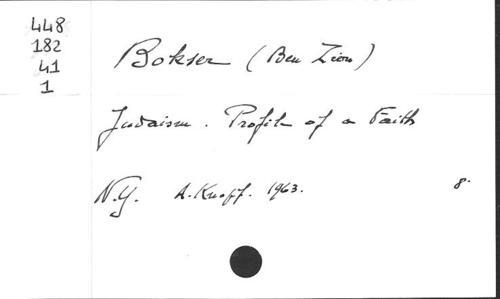 448
182
41
1
Bokser (Ben Zion)
Judaism. Profile of a Faith
N.Y. A. Knopf. 1963. 8.